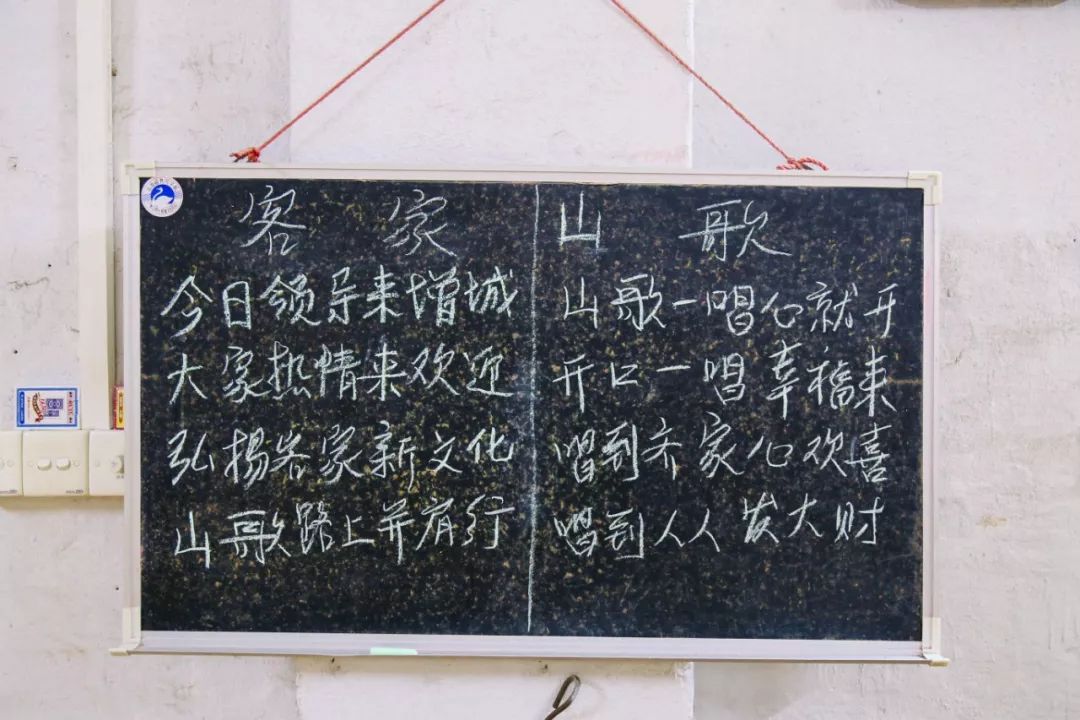 客家山歌
今日领导来增城
大家热情来欢迎
弘揚客家新文化
山歌路上并肩行
山歌一唱心就开
开口一唱幸福来
唱到齐家心欢喜
唱到人人发大财